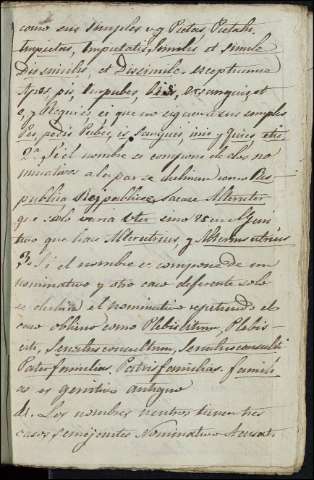 como sus simples v.g. Pietas, Pietatis,
Impietas, Impietatis, Similis et simile
Dissimilis, et Dissimile exceptuanse
pis, Impubes, Exsanguis, et
e, y Requies, ei que no siguen a sus simples
Pes, pedis Pubes, is, Sanguis, inis y Quies, etis
2ª Si el nombre se compone de dos no
minativos a la par se declinan como Res
publica Reipublicæ sacase Alteruter
que solo varia Uter sino es en el Geni
tivo que hace Alterutrius, y Alterius utrius
3ª Si el nombre se compone de un
nominativo y otro caso diferente solo
se declina el nominativo repitiendo el
caso oblicuo como Plebiscitum, Plebis
citi, Senatus consultum, Senatus consulti
Pater familias, Patris familias. famili
as es genitivo antiguo
4ª Los nombres neutros tienen tres
casos semejantes Nominativo Acusati-